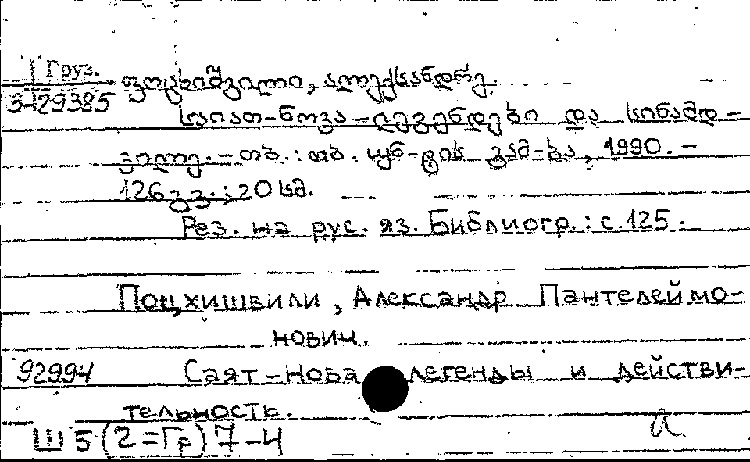 Груз.
3-29385
ფოცხიშვილი, ალექსანდრე.
საიათ-ნოვა - ლეგენდები და სინამდ-
ვილე. - თბ. : თბ. უნ-ტის გამ-ბა, 1990. -
126 გვ. ; 20 სმ.
Рез. на рус. яз. Библиогр.: с. 125.
Поцхишвили, Александр Пантелеймо-
нович.
92994 Саят-Нова легенды и действи-
тельность.
Ш5(2=Гр)7-4